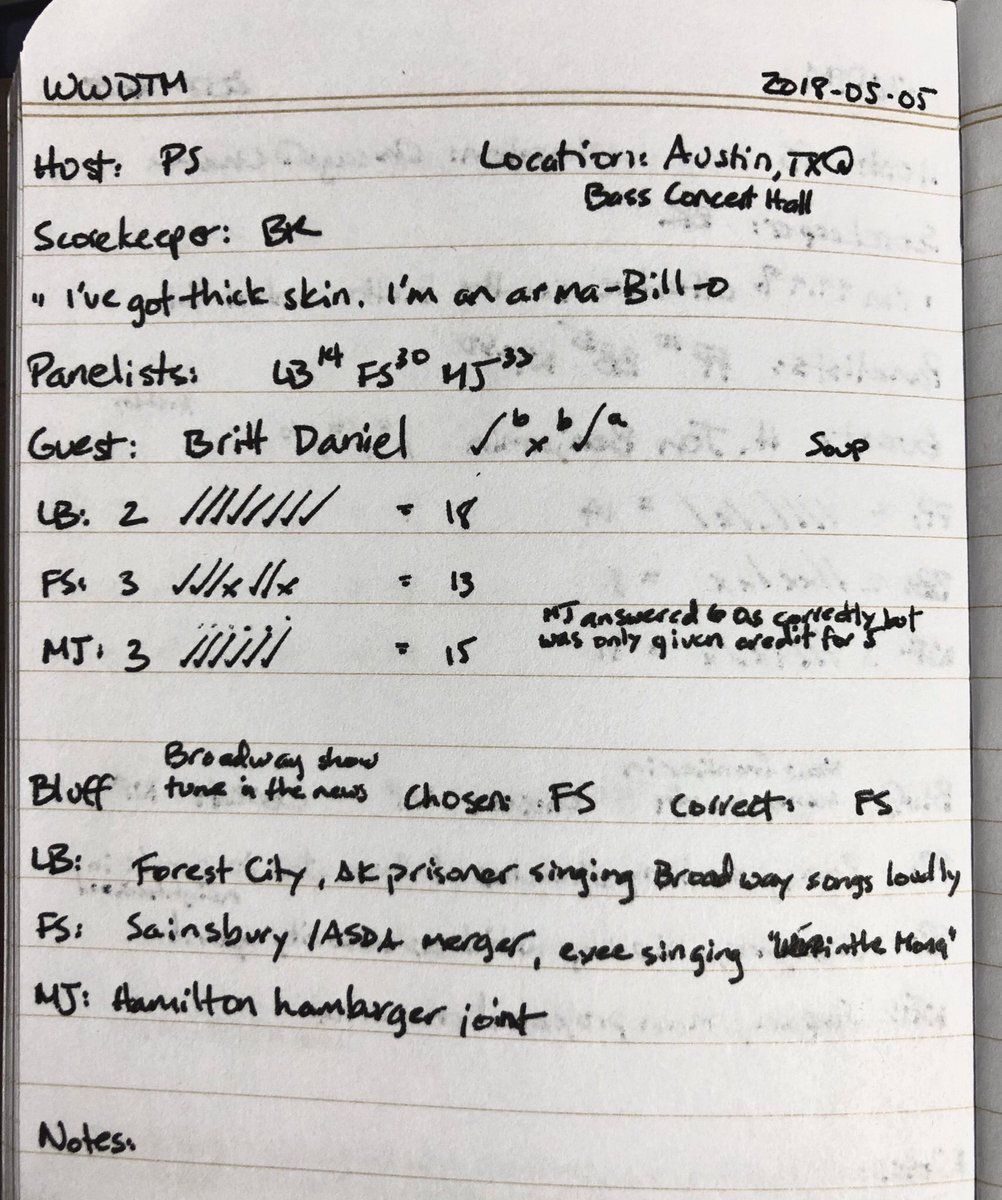 WWDTM 2018-05-05
Host: PS Location: Austin, TX
Bass Concert Hall
Scorekeeper: BK
"I've got thick skin. I'm an arma-Bill-o
Panelists: LB 14 FS 30 MJ 33
Guest: Britt Daniel ✓ b x b ✓ a Soup
LB: 2 ✓✓✓✓✓✓✓✓ = 18
FS: 3 ✓✓✓x✓✓x = 13
MJ: 3 ✓✓✓✓✓✓ = 15
MJ answered 6 Qs correctly but
was only given credit for 5
Broadway show
tune in the news
Bluff Chosen: FS Correct: FS
LB: Forest City, AK prisoner singing Broadway songs loudly
FS: Sainsbury/ASDA merger, exec singing "in the Mong"
MJ: Hamilton hamburger joint
Notes: